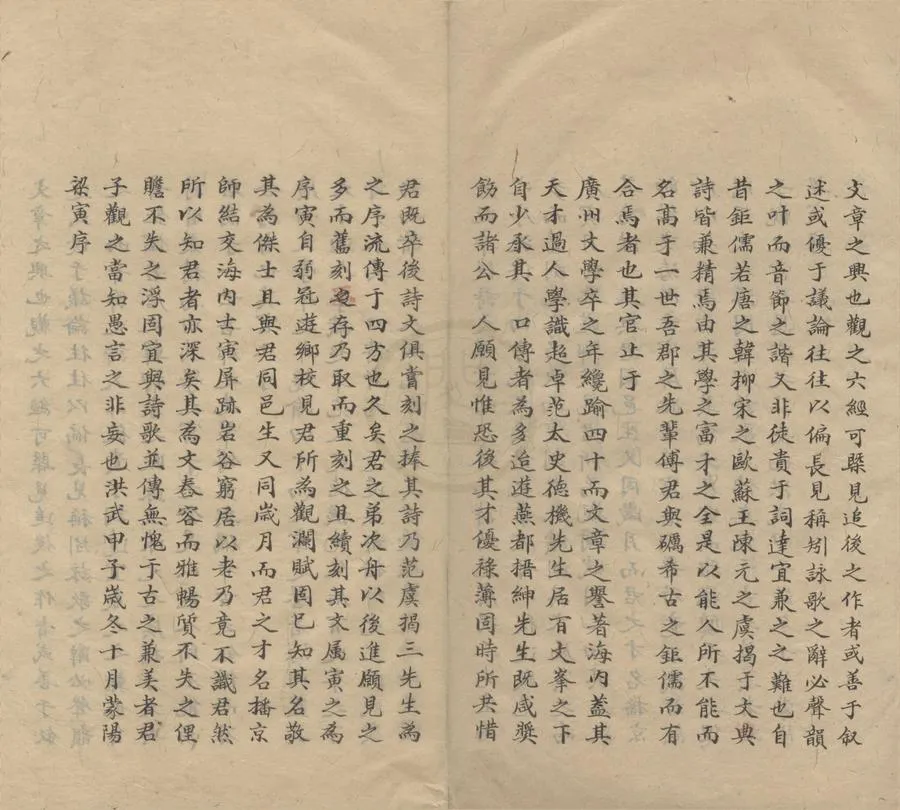 文章之興也觀之六經可槩見追後之作者或善于叙
述或優于議論往往以偏長見稱矧詠歌之辭必聲韻
之叶而音節之諧又非徒貴于詞達宜兼之之難也自
昔鉅儒若唐之韓栁宋之歐蘇王陳元之虞揭于文與
詩皆兼精焉由其學之富才之全是以能人所不能而
名髙于一世吾郡之先輩傅君與礪希古之鉅儒而有
合焉者也其官止于
廣州文學卒之年纔踰四十而文章之譽著海内葢其
天才過人學識超卓范太史徳機先生居百丈峯之下
自少承其口傳者為多迨遊燕都搢紳先生既咸奬
飭而諸公人願見惟恐後其才優祿薄同時所共惜
君既卒後詩文俱嘗刻之捧其詩乃范虞揭三先生為
之序流傳于四方也久矣君之弟次舟以後進願見之
多而舊刻之存乃取而重刻之且續刻其文属寅之為
序寅自弱冠遊鄉校見君所為觀瀾賦固已知其名敬
其為傑士且與君同邑生又同嵗月而君之才名播京
師結交海内士寅屏跡岩谷窮居以老乃竟不識君然
所以知君者亦深矣其為文舂容而雅暢質不失之俚
贍不失之浮固宜與詩歌並傳無愧于古之兼美者君
子觀之當知愚言之非妄也洪武甲子嵗冬十月蒙陽
梁寅序